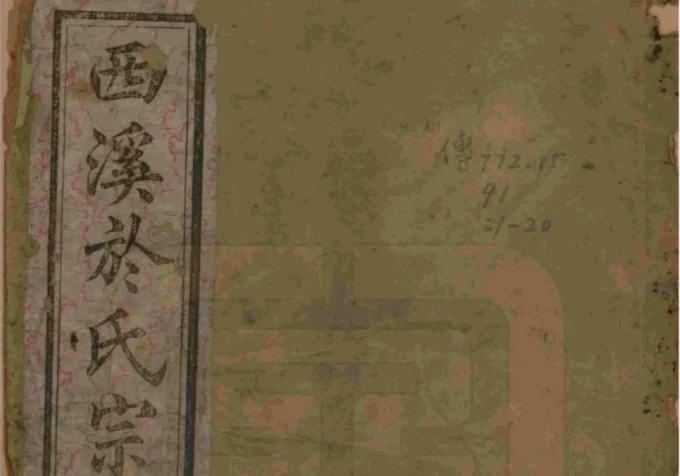 西溪於氏宗
傳 772.15
91
:1-20